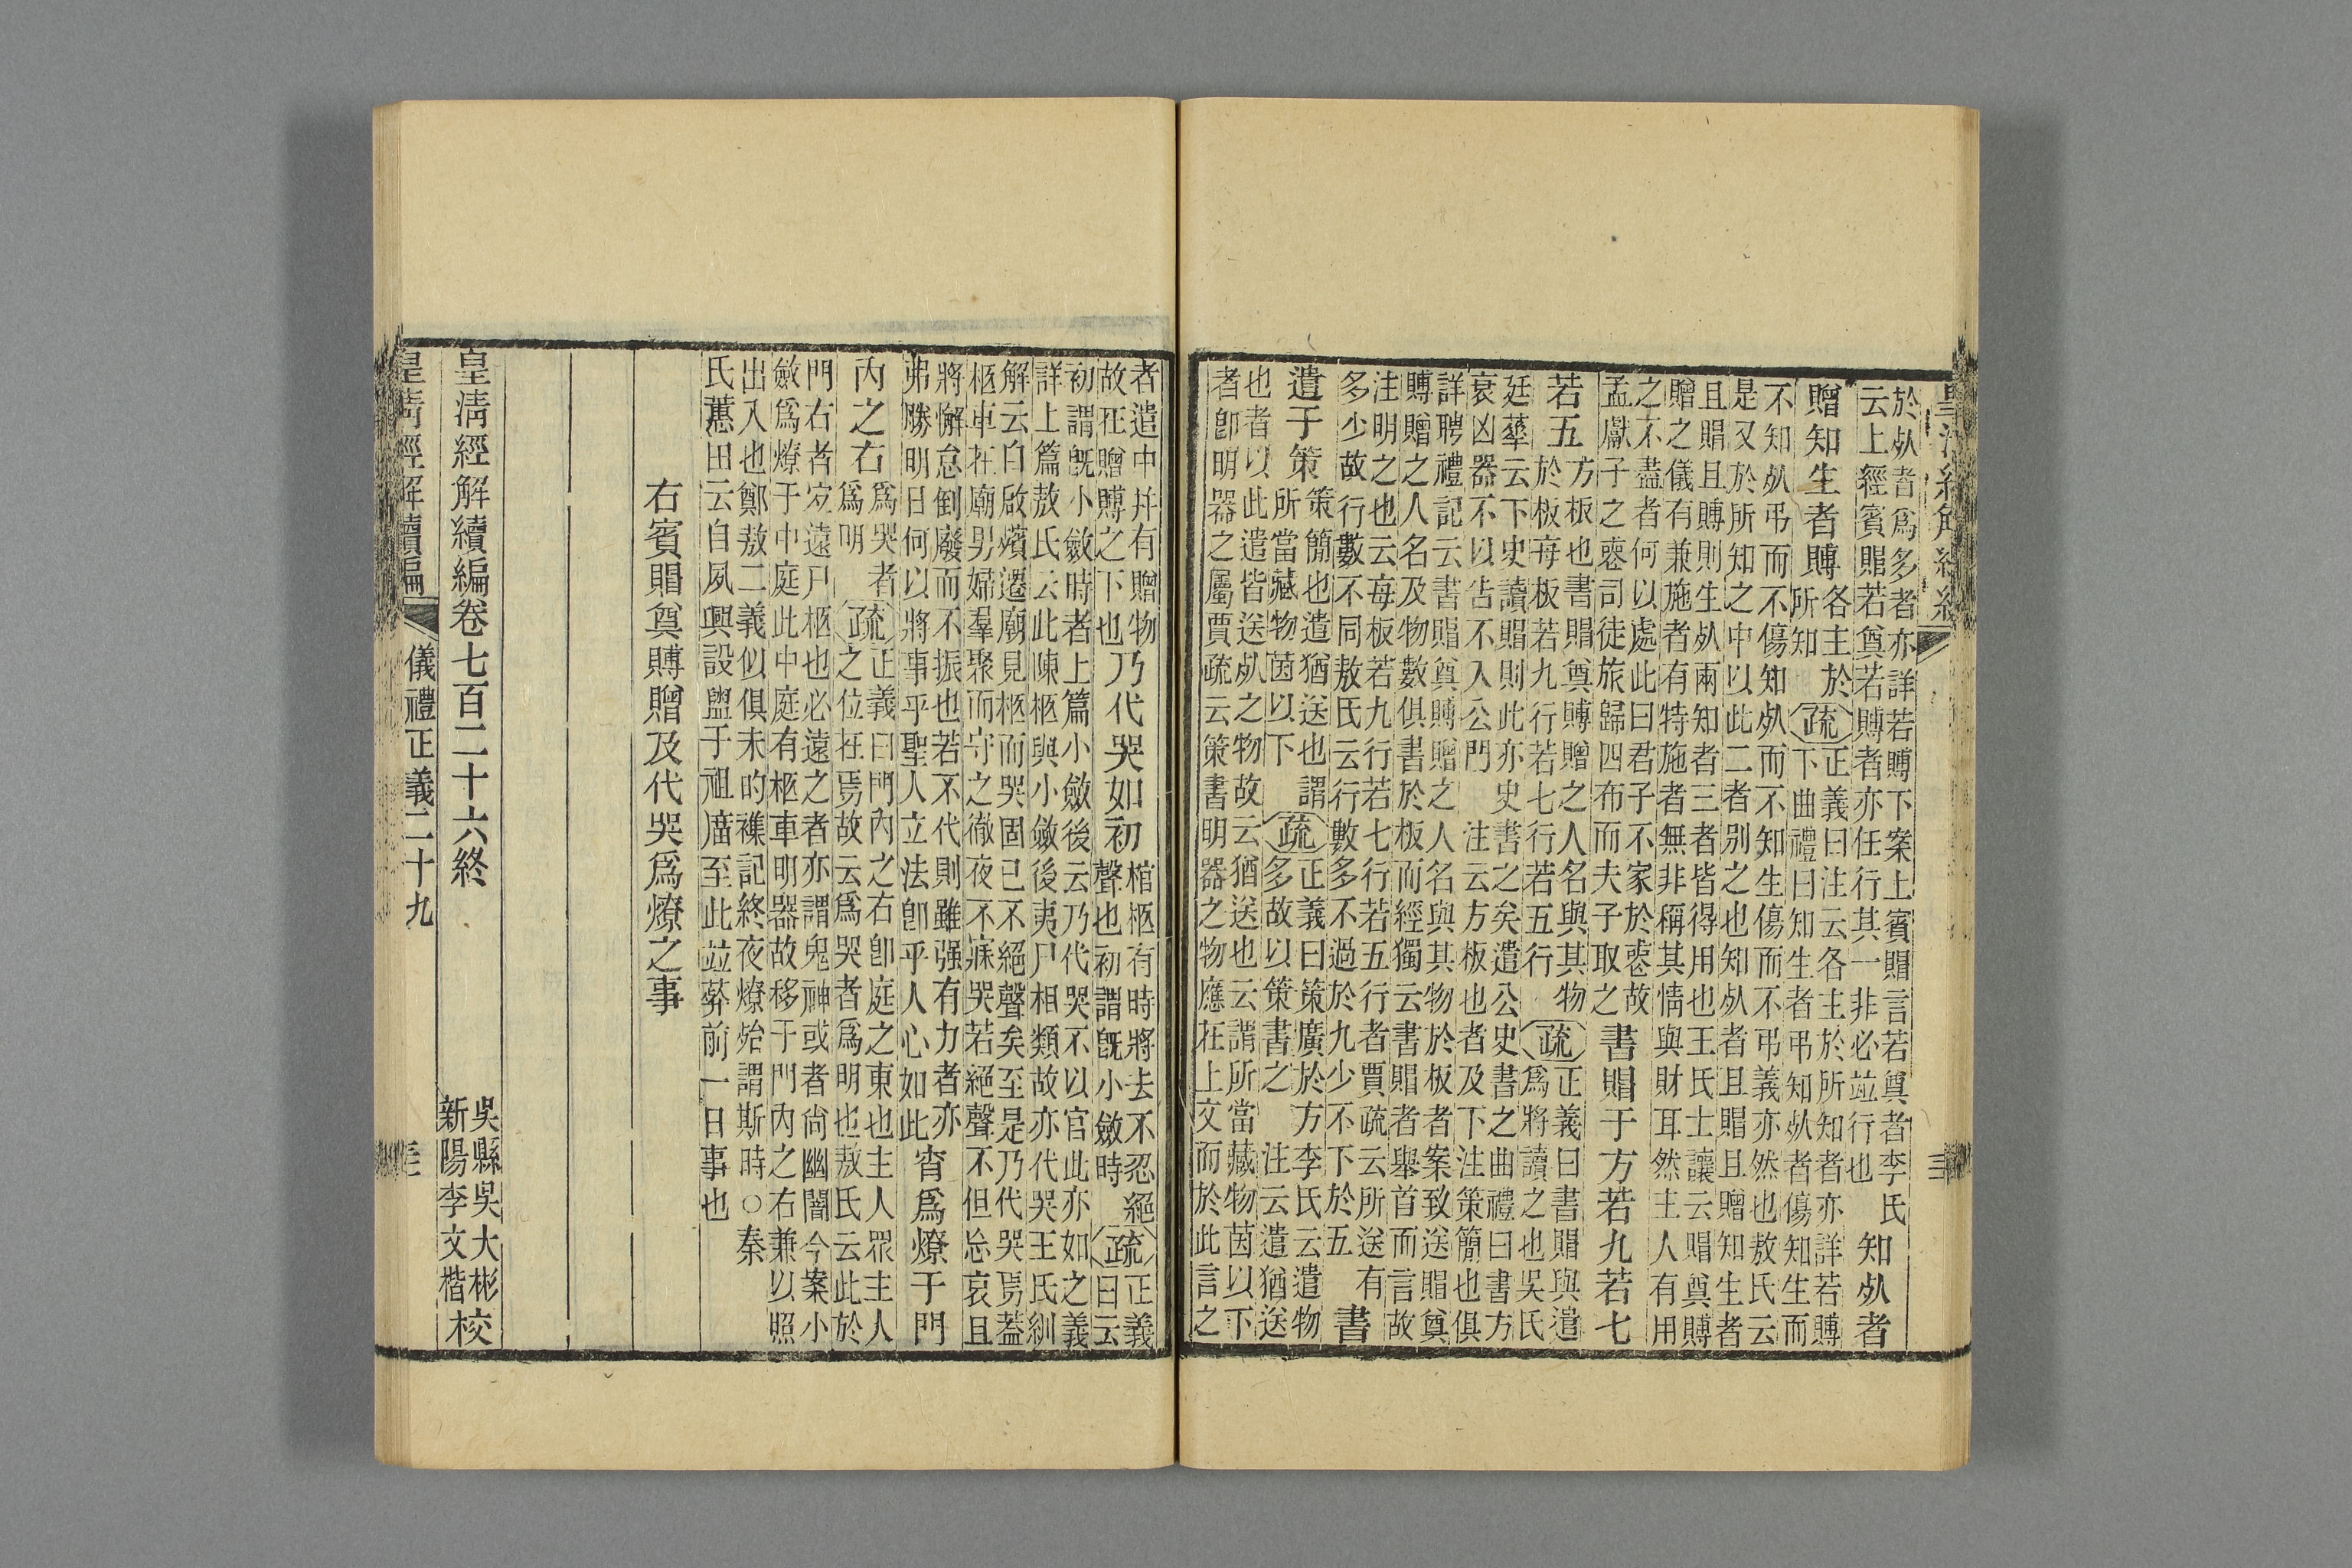 於𣦸者爲多者亦詳若賻下案上賓賵言若奠者李氏
云上經賓賵若奠若賻者亦任行其一非必竝行也
知𣦸者
贈知生者賻
各主於
所知
疏
正義曰注云各主於所知者亦詳若賻
下曲禮曰知生者弔知𣦸者傷知生而
不知𣦸弔而不傷知𣦸而不知生傷而不弔義亦然也敖氏云
是又於所知之中以此二者别之也知𣦸者且賵且贈知生者
且賵且賻則生𣦸兩知者三者皆得用也王氏士讓云賵奠賻
贈之儀有兼施者有特施者無非稱其情與財耳然主人有用
之不盡者何以處此曰君子不家於喪故
孟獻子之喪司徒旅歸四布而夫子取之
書賵于方若九若七
若五
方板也書賵奠賻贈之人名與其物
於板每板若九行若七行若五行
疏
正義曰書賵與遣
爲將讀之也吳氏
廷華云下史讀賵則此亦史書之矣遣公史書之曲禮曰書方
衰凶器不以告不入公門 注云方板也者及下注策簡也俱
詳聘禮記云書賵奠賻贈之人名與其物於板者案致送賵奠
賻贈之人名及物數俱書於板而經獨云書賵者舉首而言故
注明之也云每板若九行若七行若五行者賈疏云所送有
多少故行數不同敖氏云行數多不過於九少不下於五
書
遣于策
策簡也遣猶送也謂
所當藏物茵以下
疏
正義曰策廣於方李氏云遣物
多故以策書之 注云遣猶送
也者以此遣皆送𣦸之物故云猶送也云謂所當藏物茵以下
者卽明器之屬賈疏云策書明器之物應在上文而於此言之
者遣中幷有贈物
故在贈賻之下也
乃代哭如初
棺柩有時將去不忍絕
聲也初謂旣小斂時
疏
正義
曰云
初謂旣小斂時者上篇小斂後云乃代哭不以官此亦如之義
詳上篇敖氏云此陳柩與小斂後夷尸相類故亦代哭王氏紃
解云自啟殯遷廟見柩而哭固已不絕聲矣至是乃代哭焉蓋
柩車在廟男婦羣聚而守之徹夜不寐哭若絕聲不但忘哀且
將懈怠倒廢而不振也若不代則雖强有力者亦
弗勝明日何以將事乎聖人立法卽乎人心如此
宵爲燎于門
內之右
爲哭者
爲明
疏
正義曰門內之右卽庭之東也主人眾主人
之位在焉故云爲哭者爲明也敖氏云此於
門右者宐遠尸柩也必遠之者亦謂鬼神或者尙幽闇今案小
斂爲燎于中庭此中庭有柩車明器故移于門內之右兼以照
出入也鄭敖二義似俱未的襍記終夜燎殆謂斯時○秦
氏蕙田云自夙興設盥于祖廟至此竝葬前一日事也
右賓賵奠賻贈及代哭爲燎之事
皇淸經解續編卷七百二十六終
吳縣吳大彬
新陽李文楷
校
皇淸經解續編
儀禮正義二十九